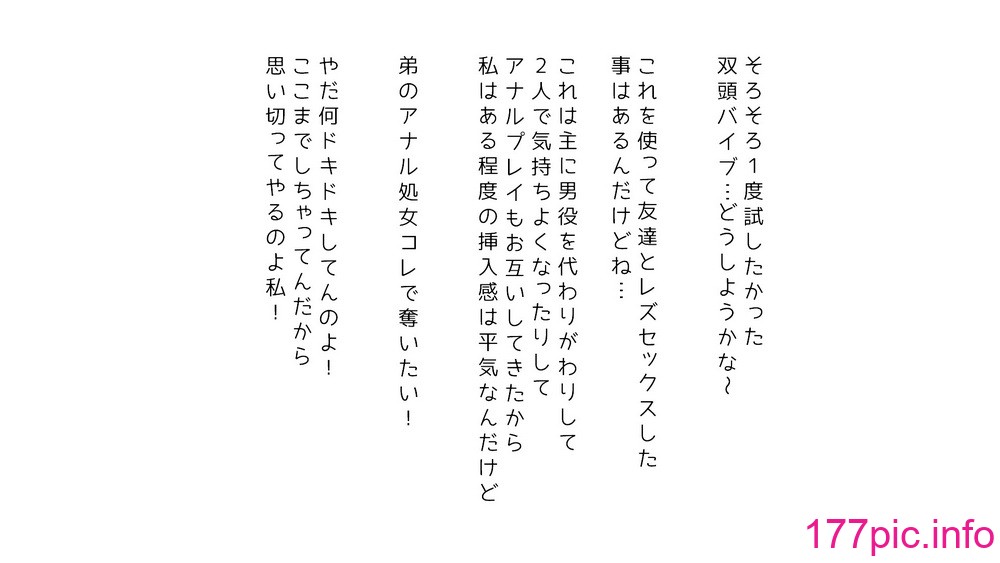 そろそろ１度試したかった
双頭バイブ…どうしようかな～
これを使って友達とレズセックスした
事はあるんだけどね…
これは主に男役を代わりがわりして
２人で気持ちよくなったりして
アナルプレイもお互いしてきたから
私はある程度の挿入感は平気なんだけど
弟のアナル処女コレで奪いたい！
やだ何ドキドキしてんのよ！
ここまでしちゃってんだから
思い切ってやるのよ私！
177pic.info